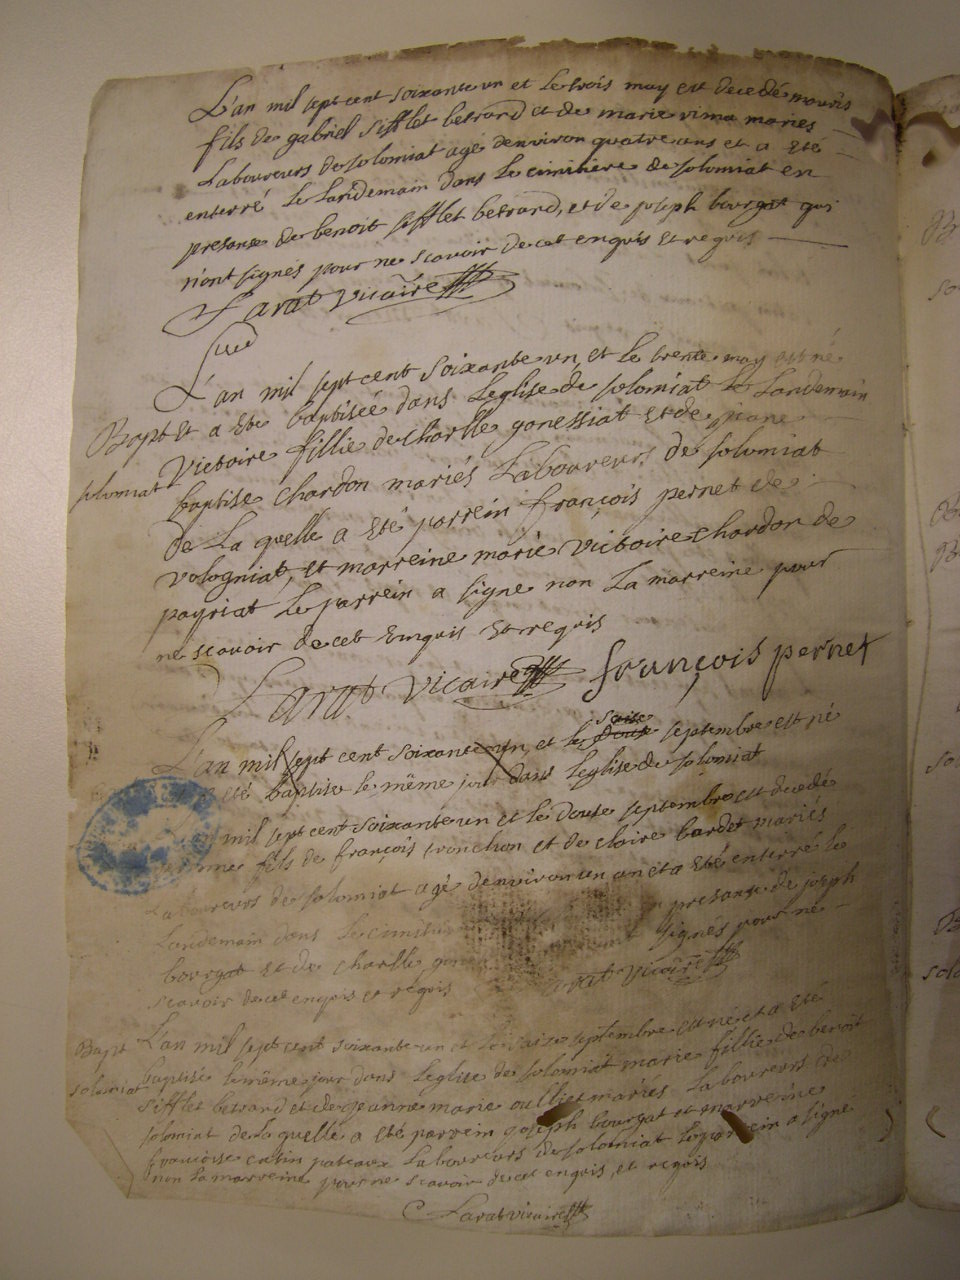 L'an mil sept cent soixante un et le trois may est decedé mouris
fils de gabriel sifflet betrand et de marie vima maries
Laboureurs de solomiat agé denviron quatre ans et a eté
enterré le landemain dans le cimitiere de solomiat en
presance de benoit sifflet betrand, et de joseph bourgat qui
n'ont signés pour ne scavoir de cet enquis et requis
Larat vicaire
L'an mil sept cent soixante un et le trente may est né
Bapt et a ete baptisée dans Leglise de solomiat le landemain
solomiat
victoire fillie de charlle gonessiat et de jeane
baptise chardon mariés Laboureurs de solomiat
de La quelle a eté parrein françois pernet de
vologniat, et marreine marie victoire chardon de
payriat le parrein a signe non la marreine pour
ne scavoir de cet enquis et requis
Larat vicaire françois pernet
L'an mil sept cent soixante un, et le septembre est né
eté baptise le même jour dans Leglise de solomiat
L'an mil sept cent soixante un et le douse septembre est decedé
fils de françois tronchon et de claire bardet mariés
Laboureurs de solomiat agé denviron un an et a eté enterré le
landemain dans le presance de joseph
bourgat et de charlle signés pour ne
scavoir de cet enquis et requis Larat vicaire
Bapt L'an mil sept cent soixante un et le saize septembre est né et a eté
solomiat baptisé le même jour dans Leglise de solomiat marie fillie de benoit
sifflet betrand et de jeanne marie oulliet mariés Laboureurs de
solomiat de la quelle a eté parrein joseph bourgat et marreine
francoise catin pateaux Laboureurs de solomiat le parrein a signé
non la marreine pour ne scavoir de cet enquis, et requis
Larat vicaire